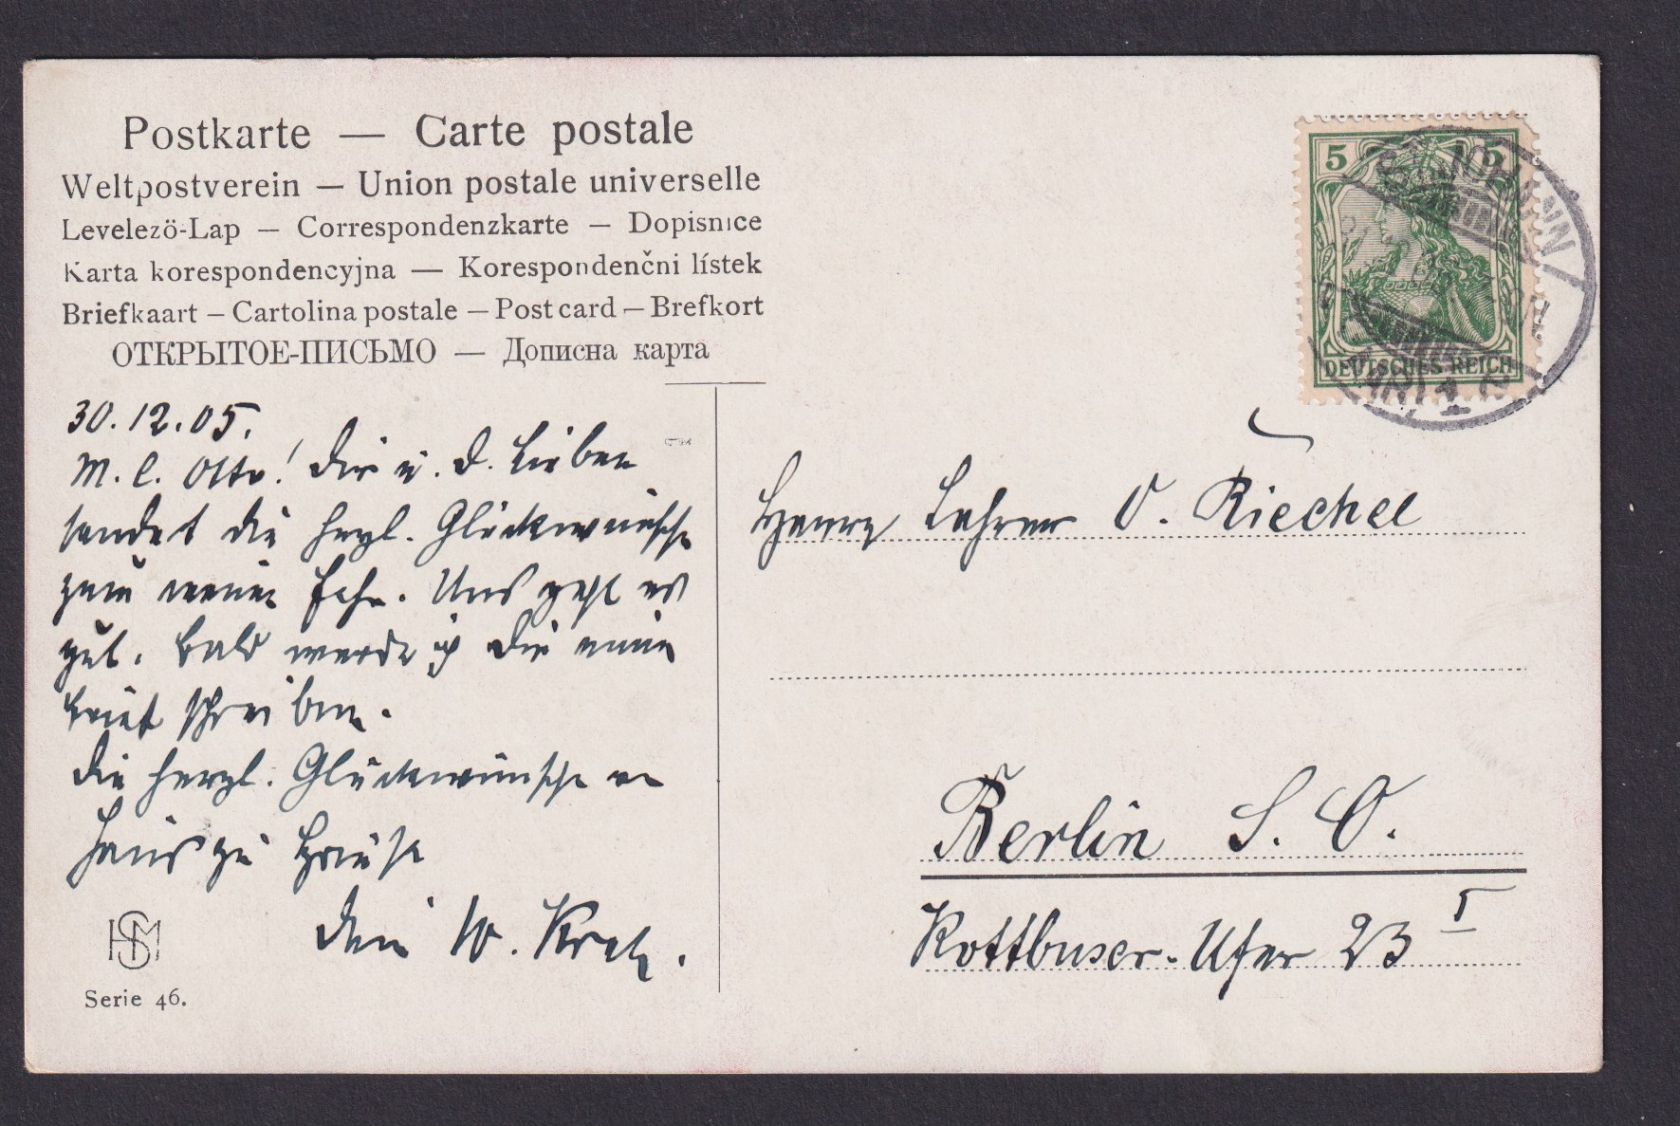 Postkarte — Carte postale
Weltpostverein — Union postale universelle
Levelező-Lap — Correspondenzkarte — Dopisnice
Karta korespondencyjna — Korespondenčni lístek
Briefkaart — Cartolina postale — Post card — Brefkort
ОТКРЫТОЕ-ПИСЬМО — Дописна карта
30.12.05.
M. l. Otto! Dir u. d. Lieben
sendet die herzl. Glückwünsche
zum neuen Jahr. Uns geht es
gut. Bald werde ich Dir einen
Brief schreiben.
Die herzl. Glückwünsche von
Haus zu Hause
Dein W.
HSM
Serie 46.
5 5
DEUTSCHES REICH
ST. JOHANN
Herrn Lehrer O. Riechel
Berlin S. O.
Kottbuser-Ufer 23 I